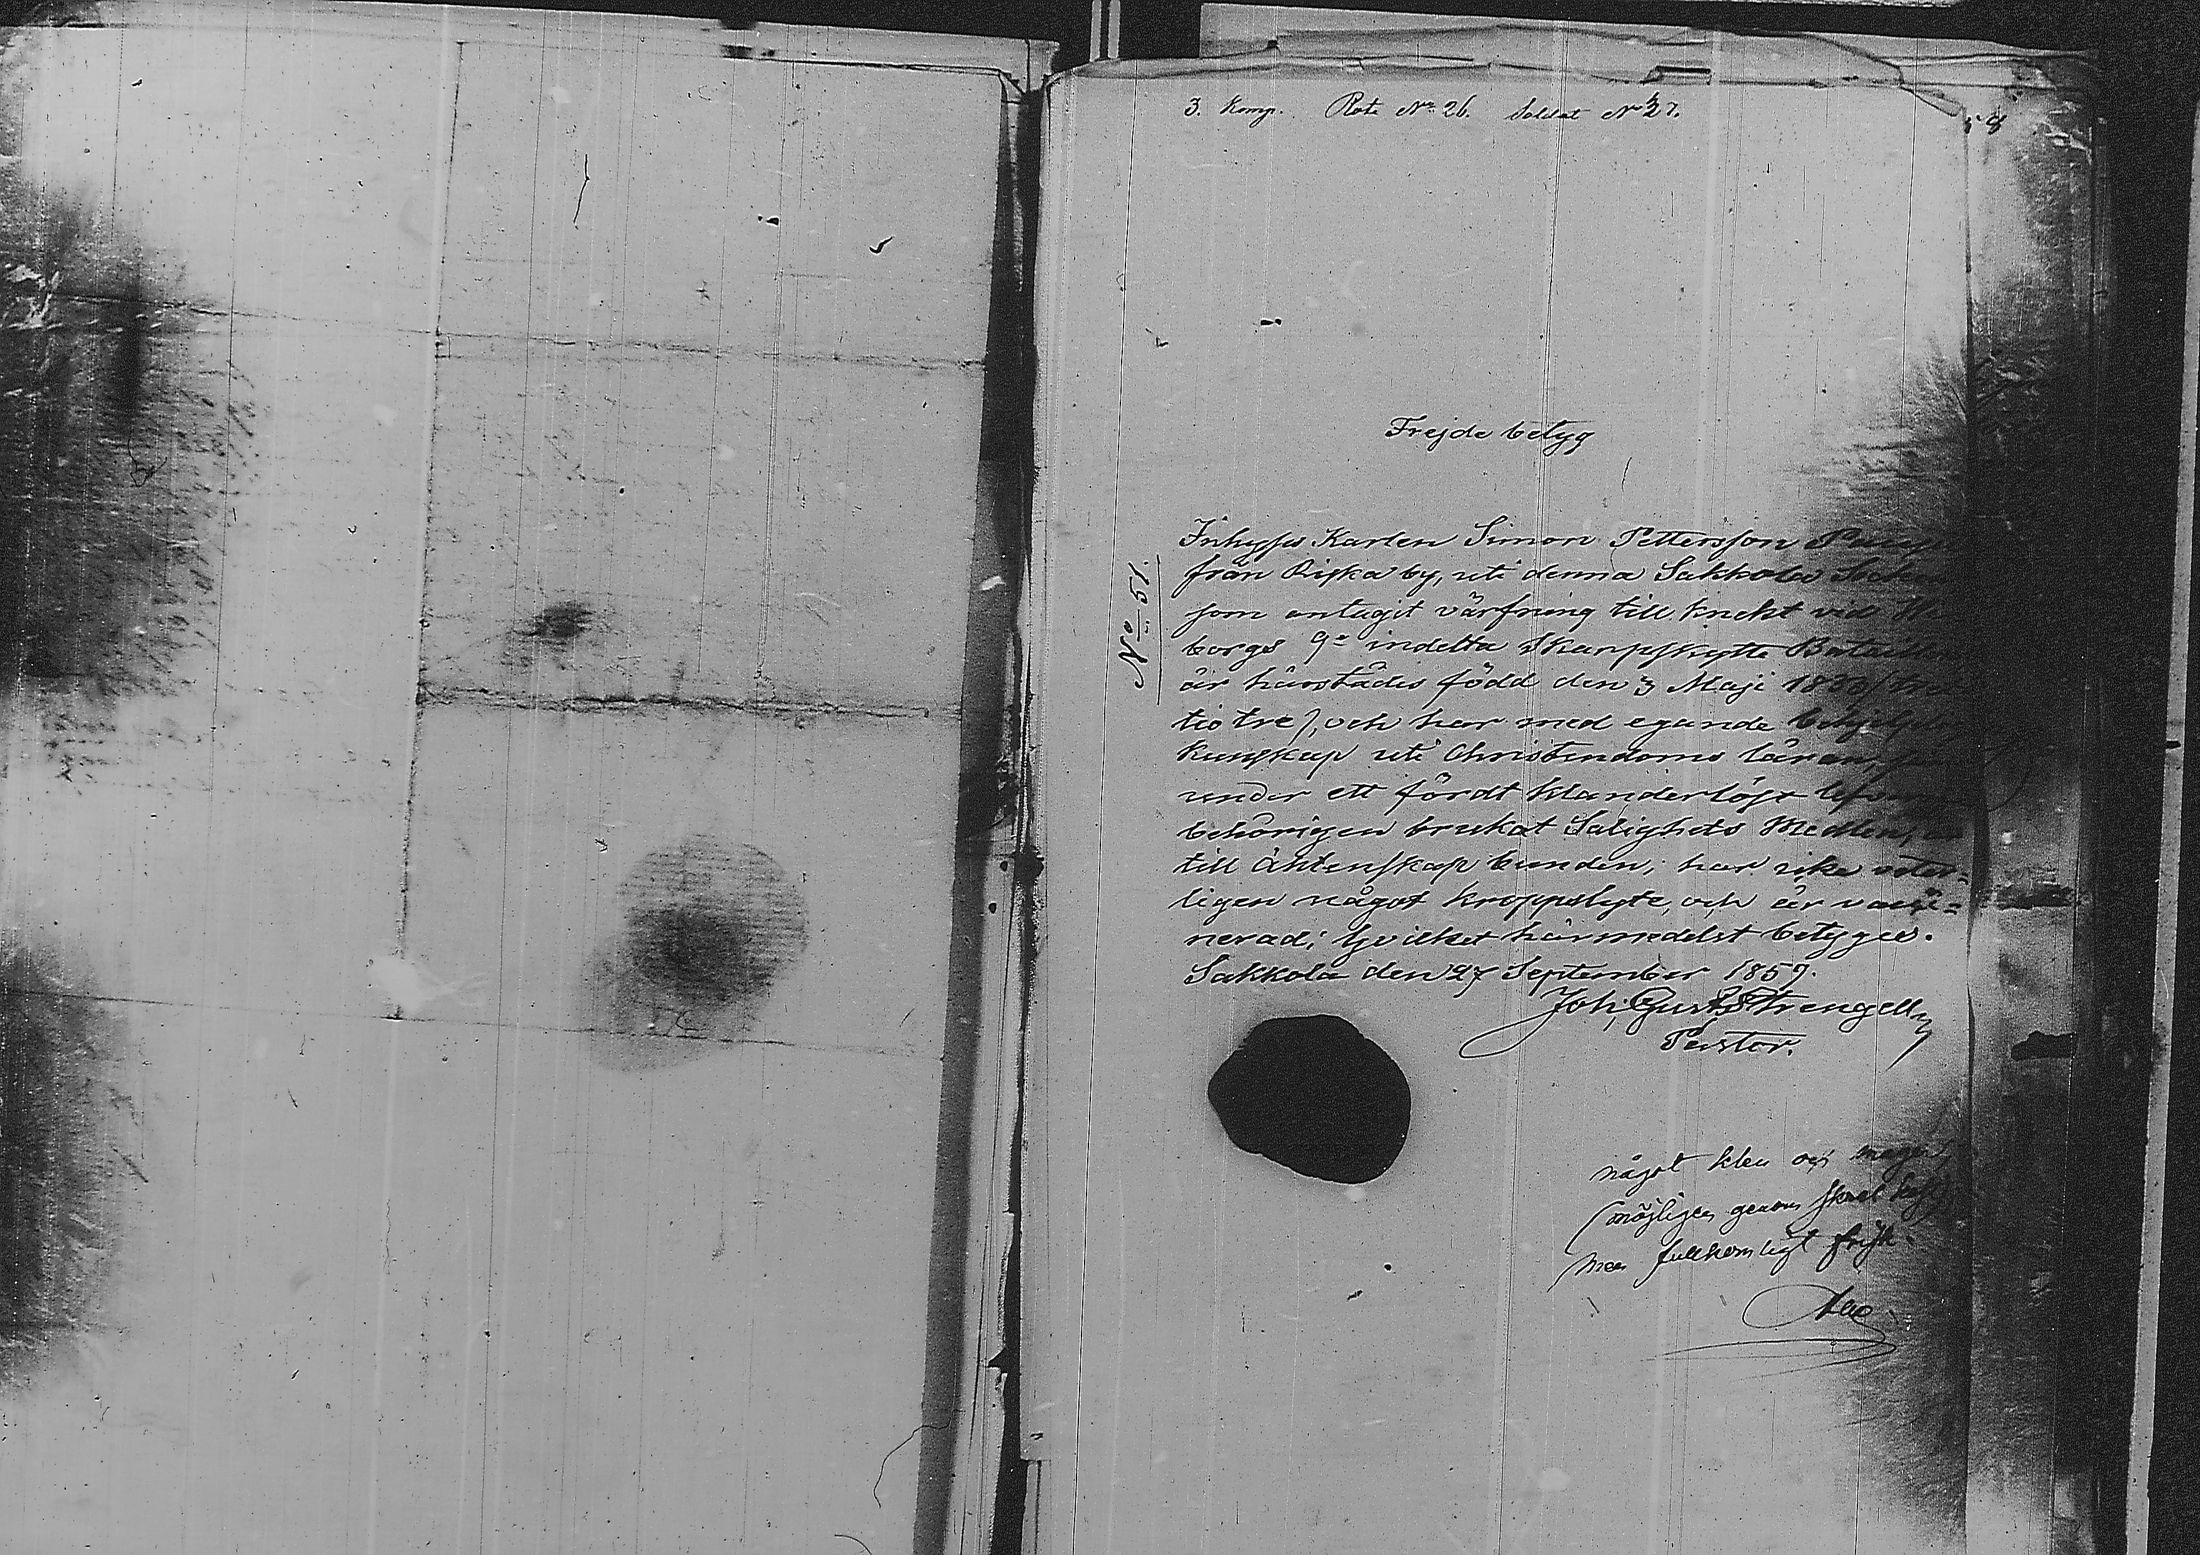 3. Komp. Rote No 26. Soldat No 27.
54
Frejde betyg
No 51.
Inhyses Karlen Simon Pettersson
från Riska by, uti denna Sakkola Socken
som antagit värfning till knekt vid
borgs 9e indelta Skarpskytte Bataillon
är härstädes född den 3 Maji 1833 (tret-
tio tre), och har med egande behjelplig
kunskap uti Christendoms läran,
under ett fördt klanderlöst lefverne
behörigen brukat Salighets Medlen,
till äktenskap bunden; har icke veter-
ligen något kroppslyte, och är vacci-
nerad; hvilket härmedelst betygas.
Sakkola den 27 September 1857.
Joh. Gust. Strengell
Pastor.
något klen och mager,
(möjligen genom skral kost)
men fullkomligt frisk.